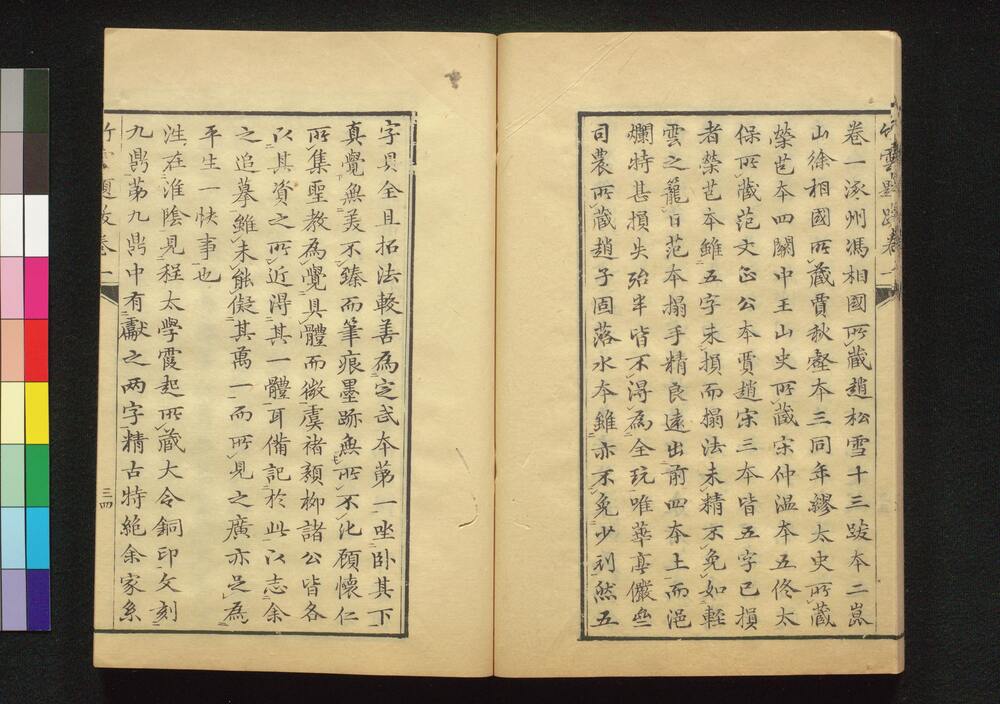 卷一涿州馮相國所藏趙松雪十三跋本二崑
山徐相國所藏賈秋壑本三同年繆太史所藏
榮芑本四關中王山史所藏宋仲温本五佟太
保所藏范文正公本賈趙宋三本皆五字已損
者榮芑本雖五字未損而搨法未精不免如輕
雲之籠日范本搨手精良遠出前四本上而浥
爛特甚損失殆半皆不得為全玩唯華亭儼齋
司農所藏趙子固落水本雖亦不免少剥然五
字具全且拓法較善為定武本第一坐卧其下
真覺無美不臻而筆痕墨跡無所不化顧懷仁
所集聖教為覺具體而微虞褚顏柳諸公皆各
以其資之所近得其一體耳備記於此以志余
之追摹雖未能儗其萬一而所見之廣亦足為
平生一快事也
注在淮陰見程太學霞起所藏大令銅印文刻
九鼎第九鼎中有獻之两字精古特絶余家系
竹雲題跋卷一
三四